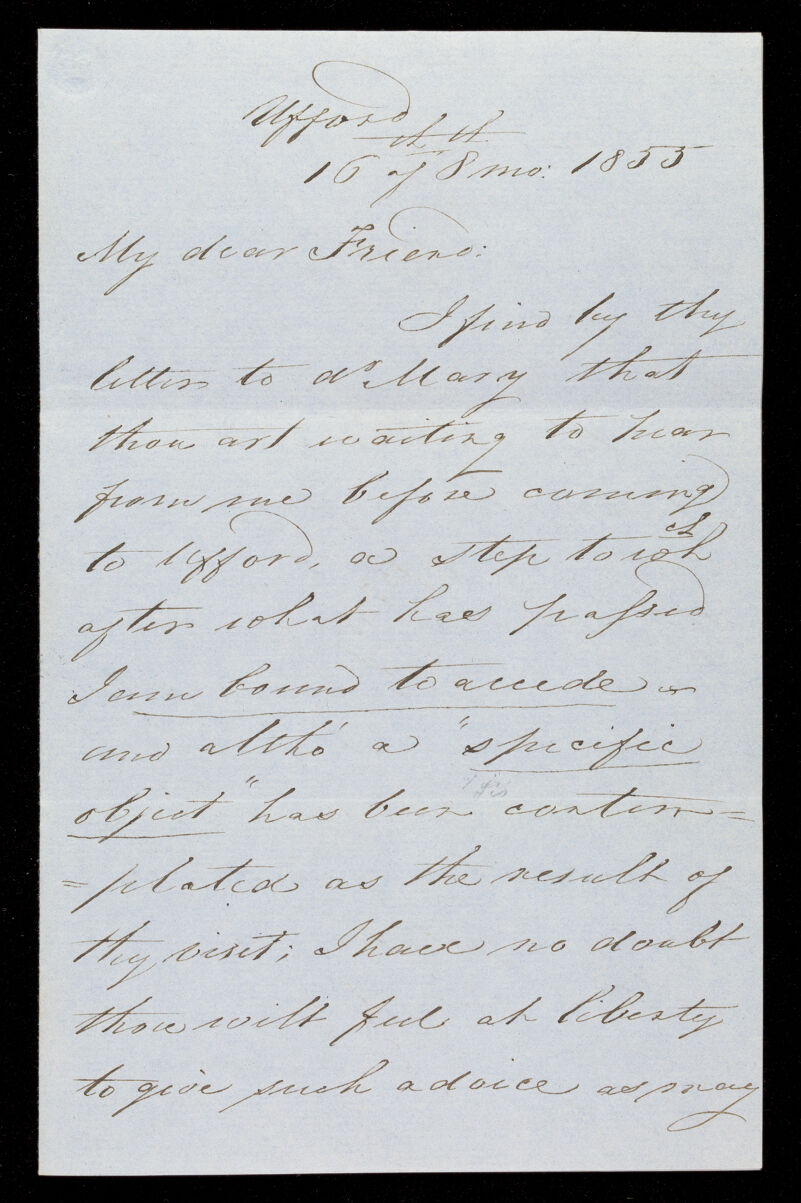 Ufford
16th of 8th mo: 1855
My dear Friend:
I find by thy
letter to dr Mary that
thou art waiting to hear
from me before coming
to Ufford, a step to wch
after what has passed
I am bound to accede
and altho' a "specific
object" has been contem=
=plated as the result of
thy visit; I have no doubt
thou wilt feel at liberty
to give such advice as may